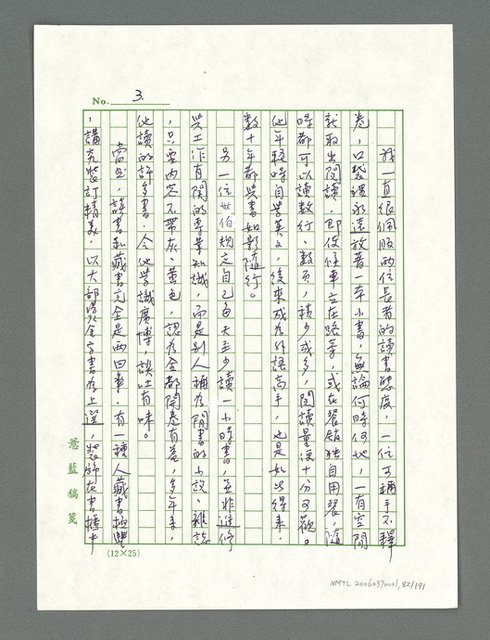 No. 3.
我一直很佩服兩位長者的讀書態度，一位手不釋
卷，口袋裡永遠放著一本小書，無論何時何地，一有空閒
就取出閱讀，即使候車立在路旁，或在餐館獨自用餐，隨
時都可以讀數行、數頁，積少成多，閱讀量便十分可觀。
他年輕時自學英文，後來成為外語高手，也是如此得來，
數十年都與書如影隨行。
另一位世伯規定自己每天至少讀一小時書，並非進修
與工作有關的專業知識，而是別人稱為閒書的小說、雜誌
，只要內容不帶灰、黃色，認為全都開卷有益，多年來，
他讀的許多書，令他學識廣博，談吐有味。
當然，讀書和藏書完全是兩回事，有一種人藏書極豐
，講究裝訂精美，以大部燙金字書為上選，裝飾在書櫃中
慧藍稿箋
(12×25)
NMTL 20060370001, 82/191